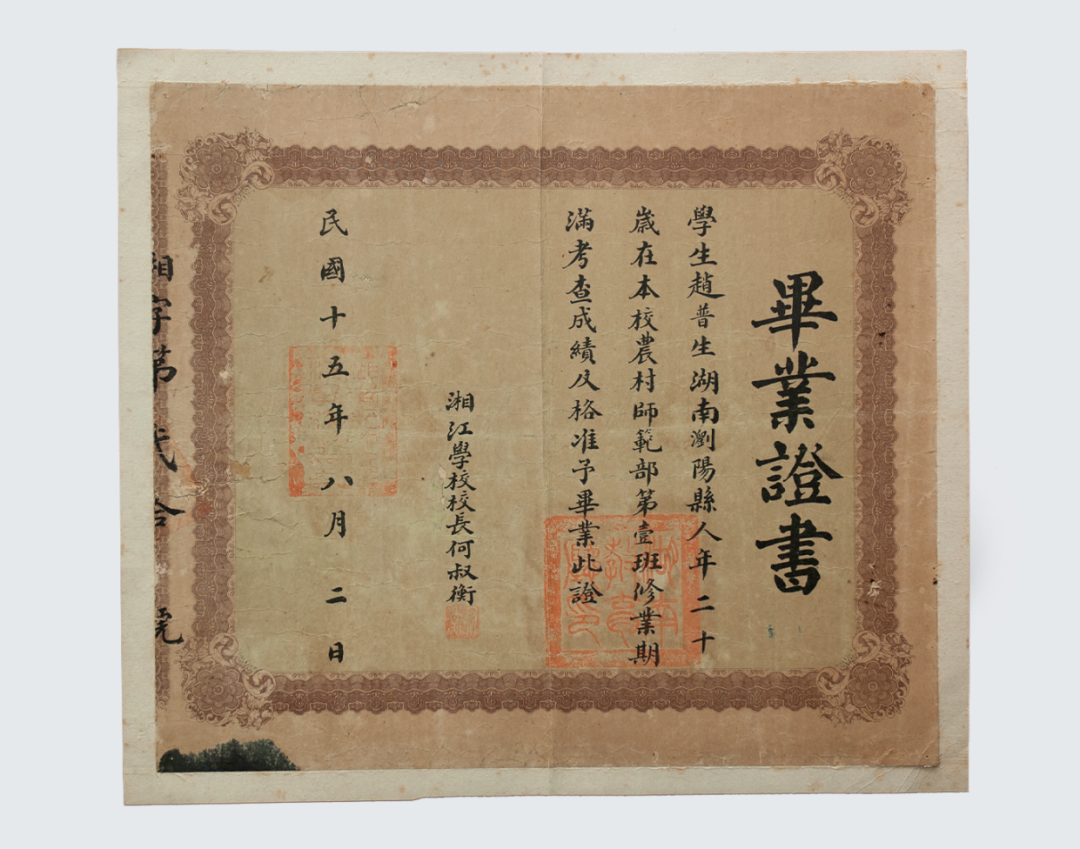 畢業證書
學生趙普生湖南瀏陽縣人年二十
歲在本校農村師範部第壹班修業期
滿考查成績及格准予畢業此證
湘江學校校長何叔衡
民國十五年八月二日
湘字第貳拾號